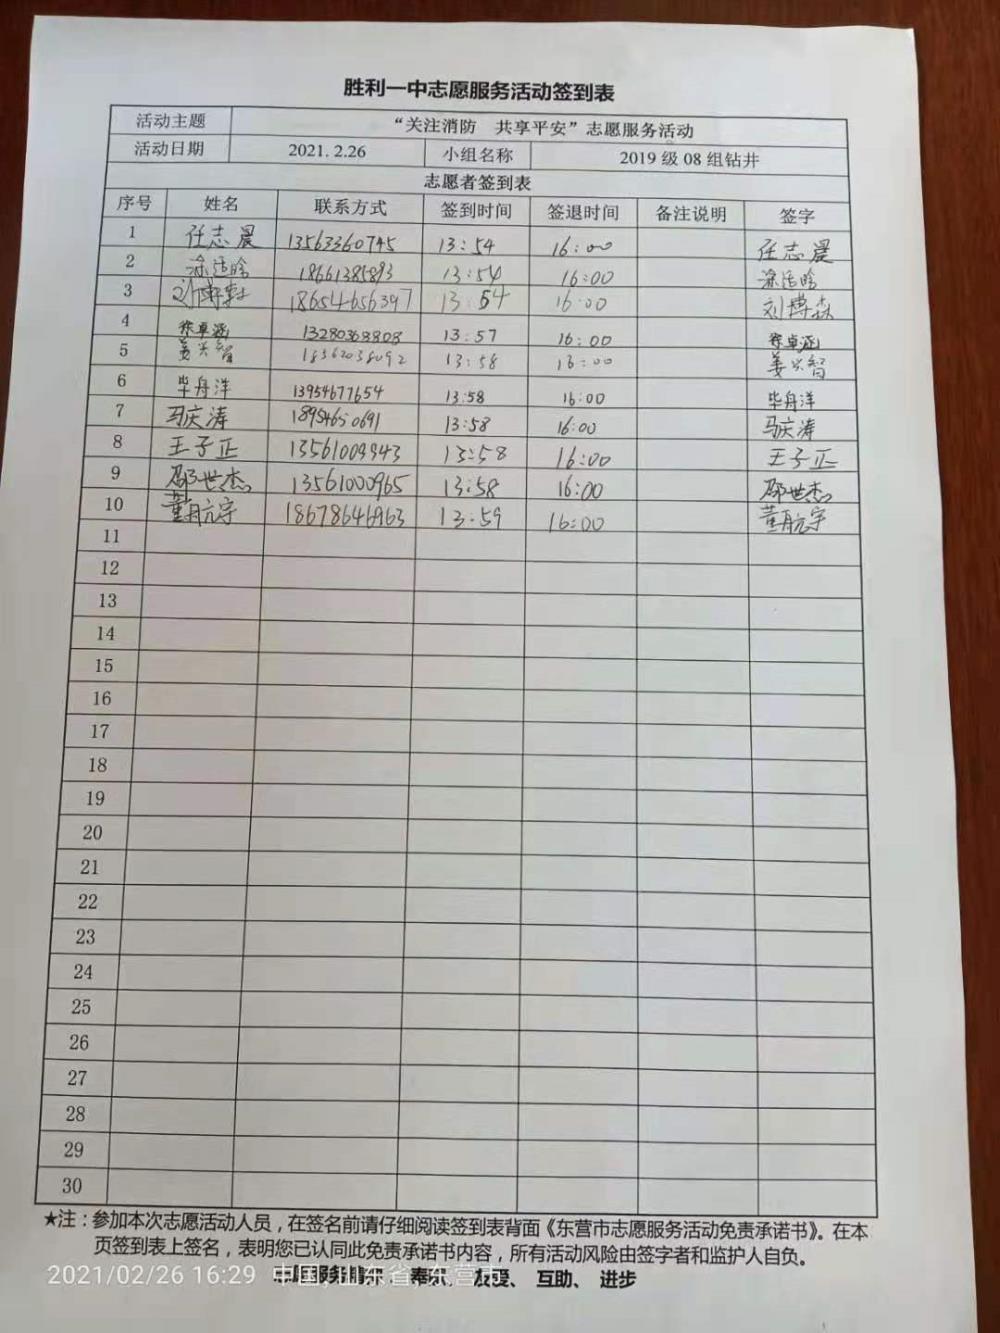 胜利一中志愿服务活动签到表
活动主题 “关注消防 共享平安”志愿服务活动
活动日期 2021.2.26 小组名称 2019 级 08 组钻井
志愿者签到表
序号 姓名 联系方式 签到时间 签退时间 备注说明 签字
1 任志晨 13563360745 13:54 16:00 任志晨
2 18661385893 13:54 16:00
3 18654656397 13:54 16:00 刘博森
4 徐卓涵 13280368808 13:57 16:00 徐卓涵
5 姜兴智 18362038092 13:58 16:00 姜兴智
6 毕舟洋 13954677654 13:58 16:00 毕舟洋
7 马庆涛 18954650691 13:58 16:00 马庆涛
8 王子正 13561009943 13:58 16:00 王子正
9 邵世杰 13561000965 13:58 16:00 邵世杰
10 董航宇 18678646963 13:59 16:00 董航宇
11
12
13
14
15
16
17
18
19
20
21
22
23
24
25
26
27
28
29
30
★注：参加本次志愿活动人员，在签名前请仔细阅读签到表背面《东营市志愿服务活动免责承诺书》。在本
页签到表上签名，表明您已认同此免责承诺书内容，所有活动风险由签字者和监护人自负。
志愿服务精神：奉献、友爱、互助、进步
2021/02/26 16:29 中国,山东省,东营市